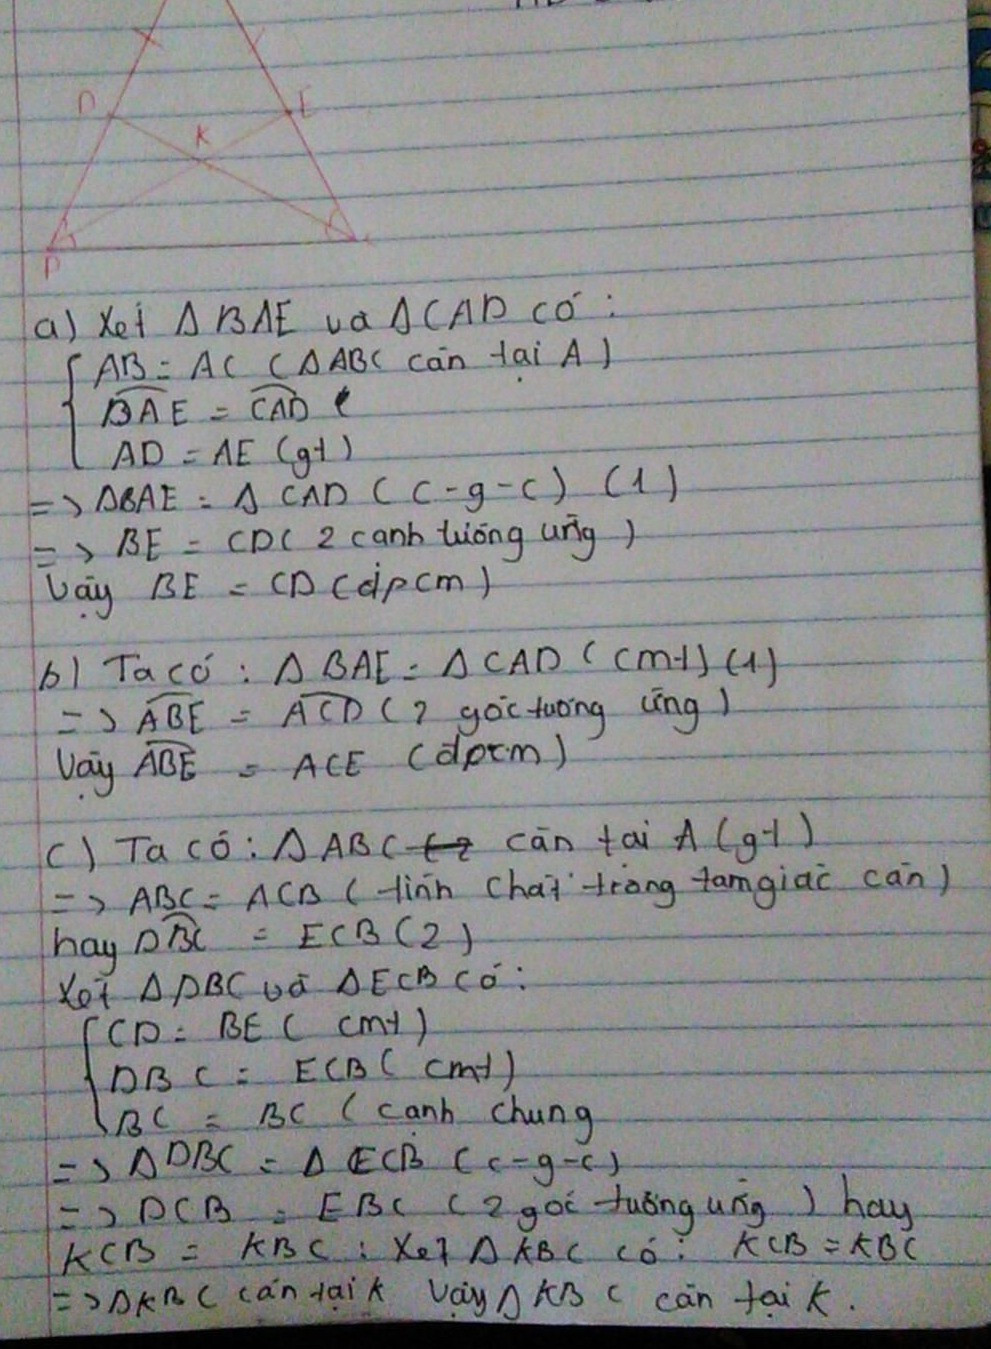 D
E
K
B
a) Xét Δ BAE và Δ CAD có :
AB = AC ( Δ ABC cân tại A )
BAE = CAD
AD = AE (gt)
=> ΔBAE = Δ CAD ( c-g-c) (1)
=> BE = CD ( 2 cạnh tương ứng )
Vậy BE = CD (đpcm)
b) Ta có : Δ BAE = Δ CAD ( cmt) (1)
=> ABE = ACD ( 2 góc tương ứng )
Vậy ABE = ACE (đpcm)
c) Ta có : Δ ABC cân tại A (gt)
=> ABC = ACB ( tính chất trong tam giác cân)
hay DBC = ECB (2)
Xét Δ DBC và Δ ECB có :
CD = BE ( cmt)
DBC = ECB ( cmt)
BC = BC ( cạnh chung
=> Δ DBC = Δ ECB ( c-g-c)
=> DCB = EBC ( 2 góc tương ứng ) hay
KCB = KBC : Xét Δ KBC có : KCB = KBC
=> ΔKBC cân tại K Vậy Δ KBC cân tại K .